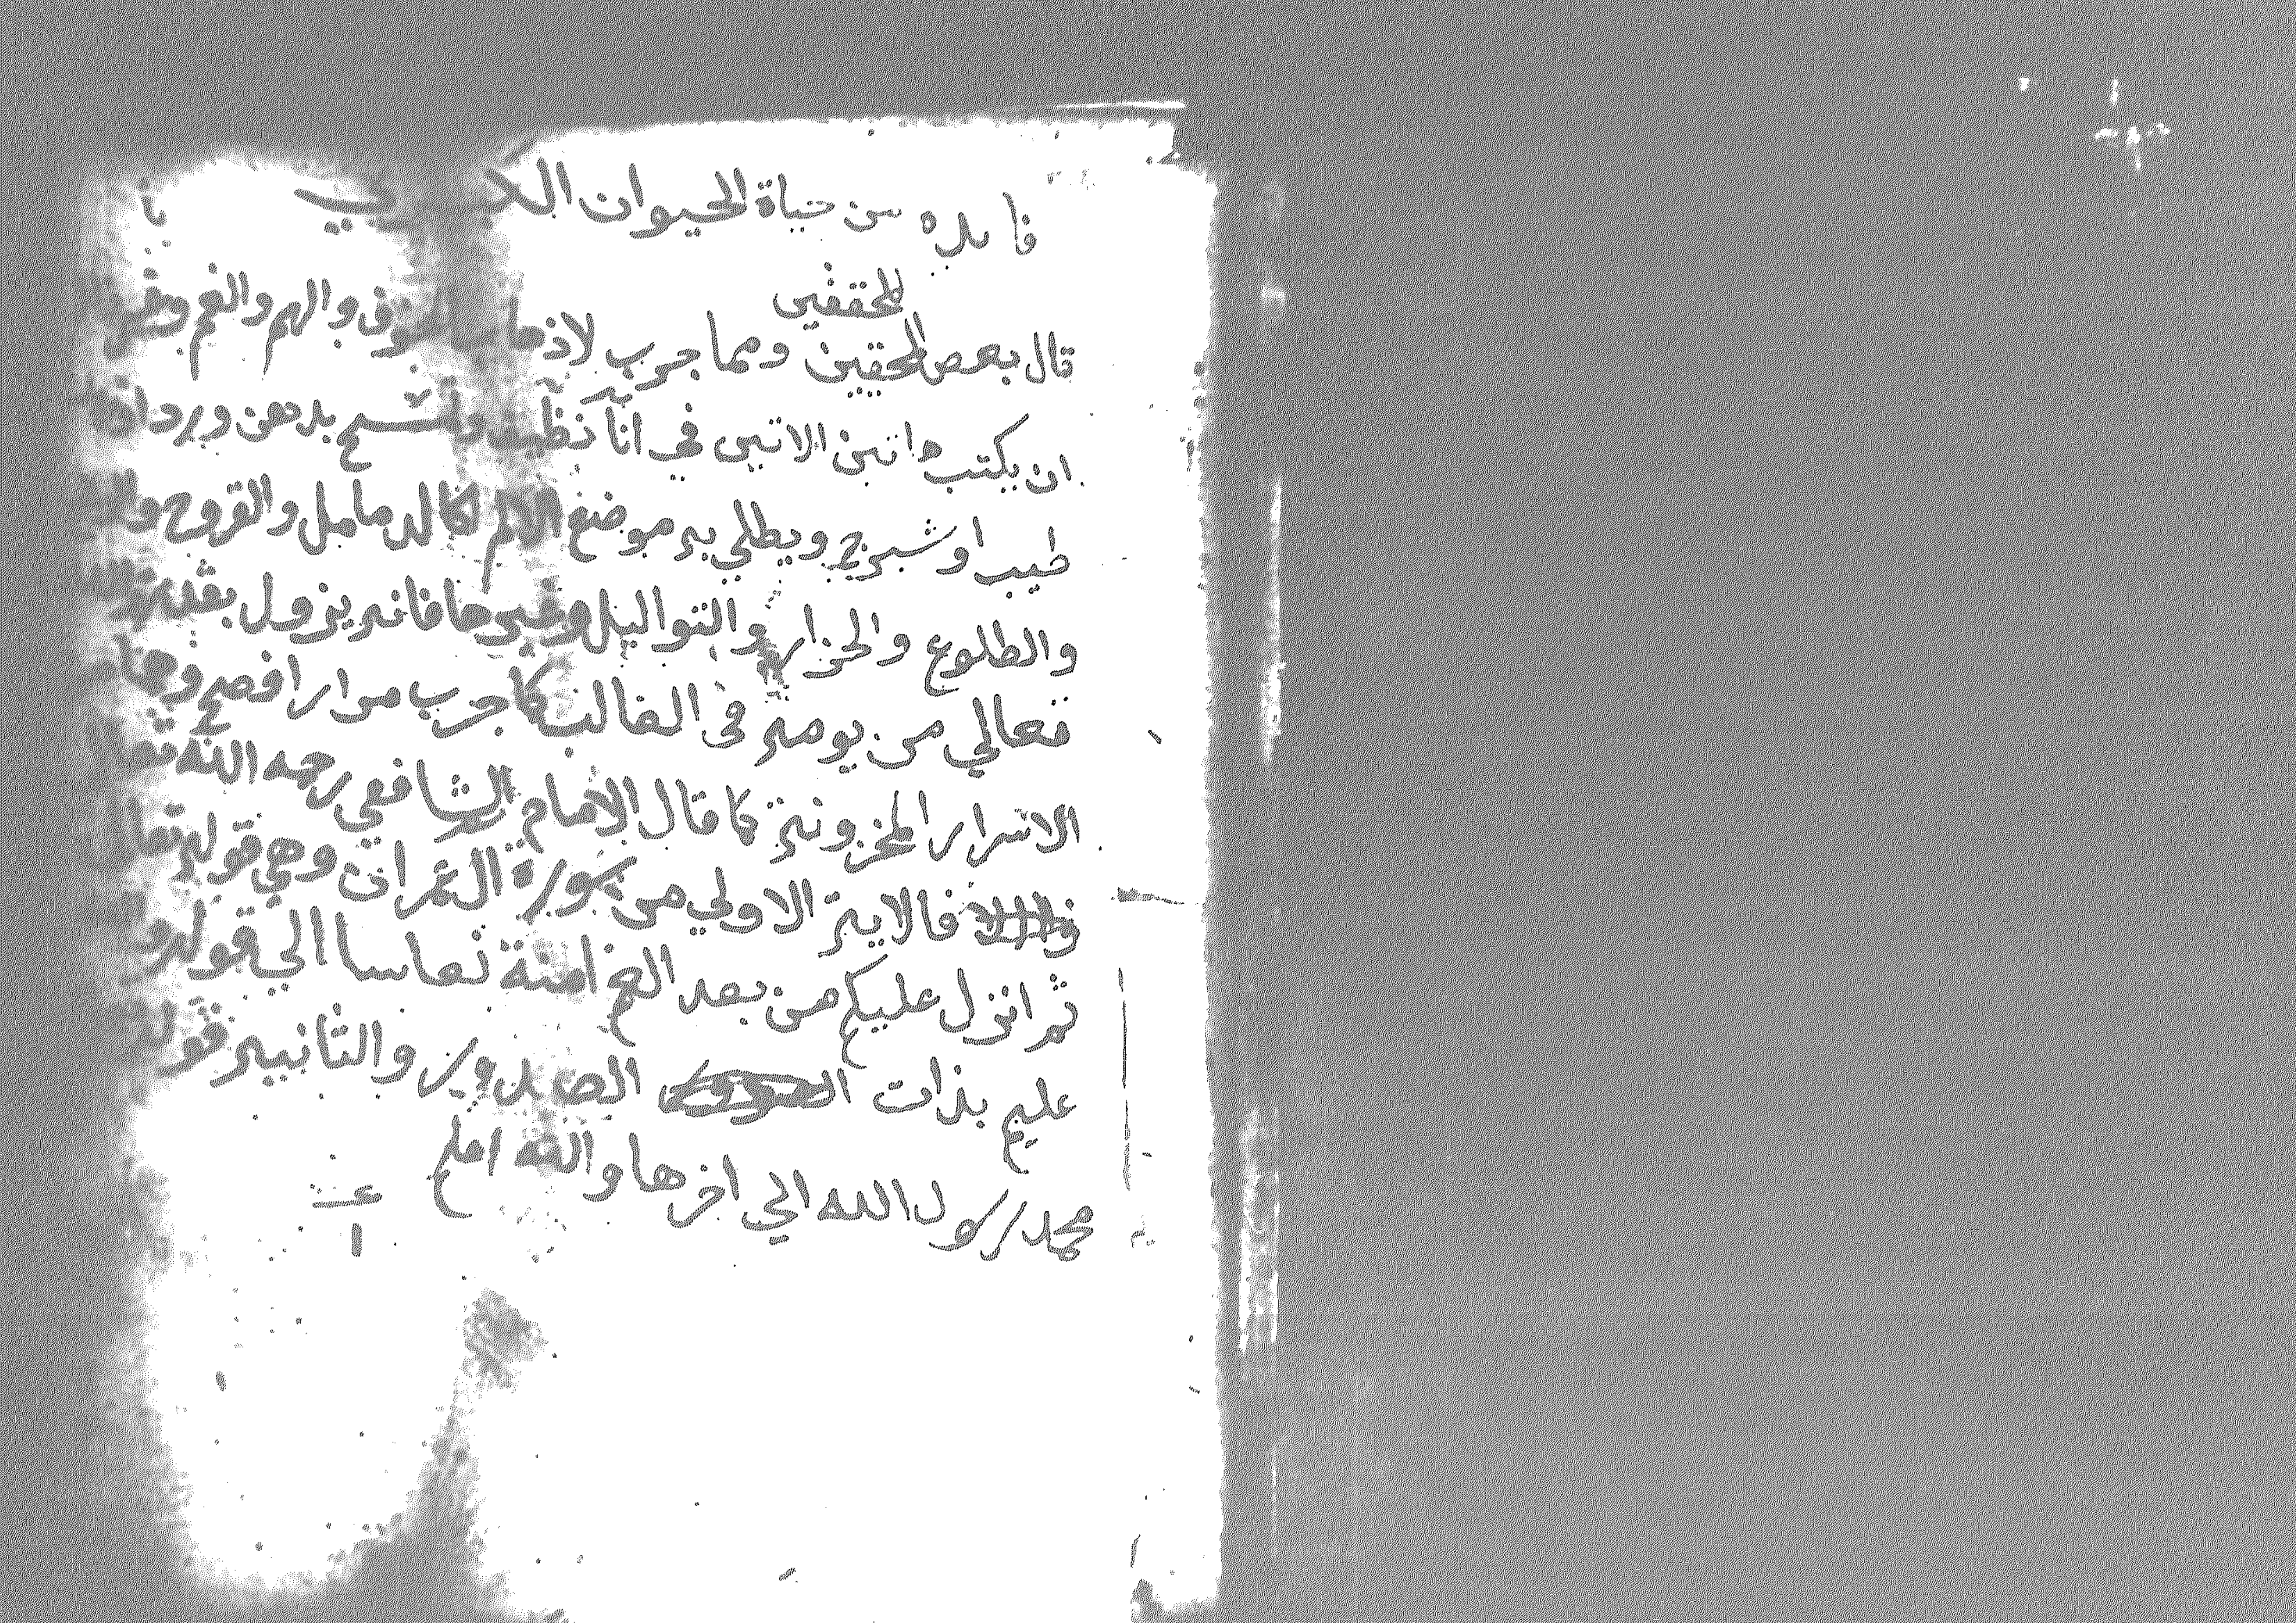 فايده من حياة الحيوان الكبرى
للمحققين
قال بعض المحققين ومما جرب لاذهاب الخوف والهم والغم
ان يكتب هاتين الايتين في اناء نظيف ويمسح بدهن ورد او
طيب او شيرج ويطلي به موضع الالم كالدمامل والقروح
والطلوع والحزاز والثواليل وغيرها فانه يزول بقدرة الله
تعالي من يومه في الغالب كما جرب مرارا فصح وهما من
الاسرار المخزونة كما قال الامام الشافعي رحمه الله تعا
فالاية الاولي من سورة ال عمران وهي قوله تعا
ثم انزل عليكم من بعد الغم امنة نعاسا الي قوله
عليم بذات الصدور والثانية قوله
محمد رسول الله الي اخرها والله اعلم